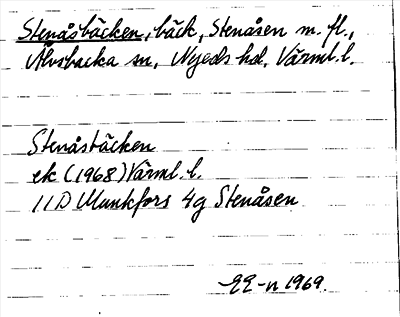 Stenåsbäcken, bäck, Stenåsen m. fl.,
Älvsbacka sn, Nyeds hd, Värml. l.
Stenåsbäcken
ek (1968) Värml. l.
11D Munkfors 4g Stenåsen
1969.